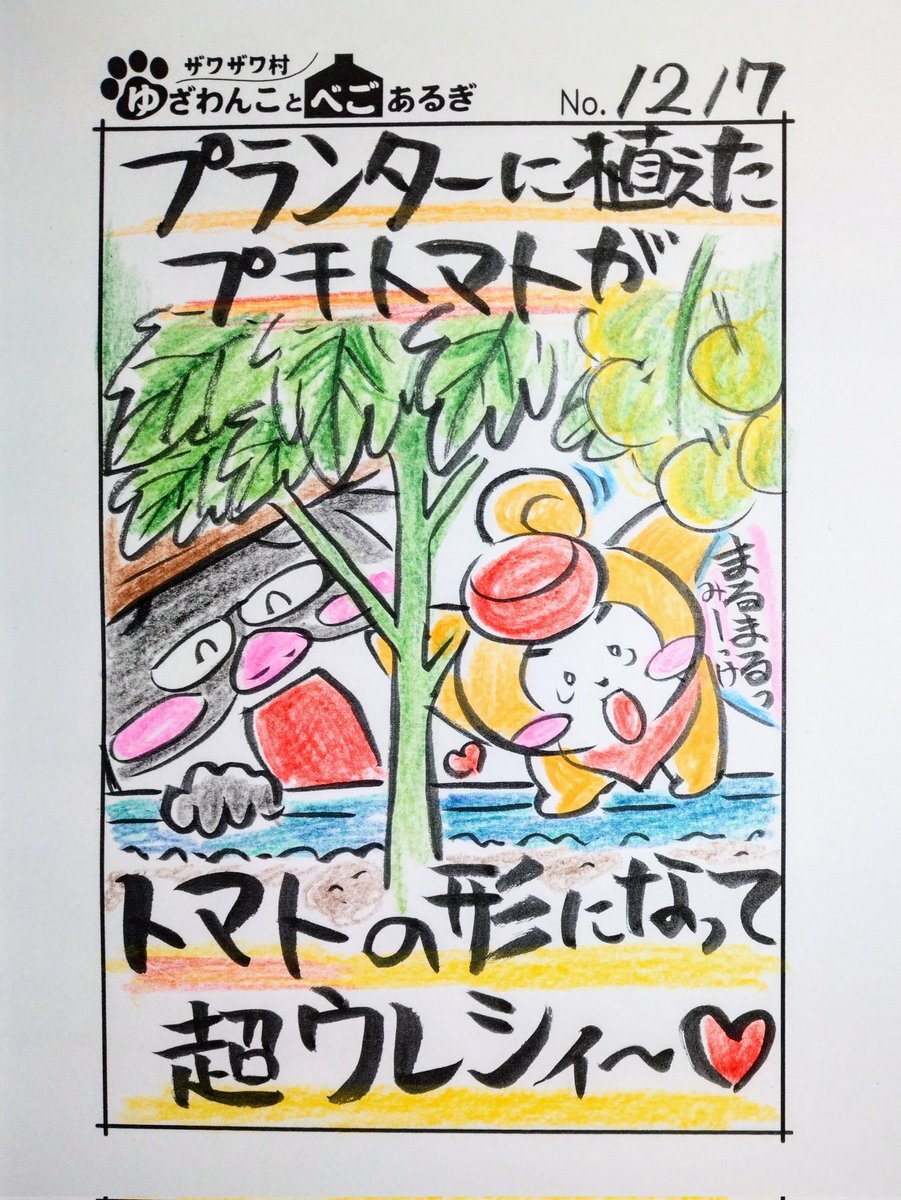 ザワザワ村
ゆざわんことべごあるぎ
No. 1217
プランターに植えた
プチトマトが
まるまるっ
みーっけ
トマトの形になって
超ウレシィ〜